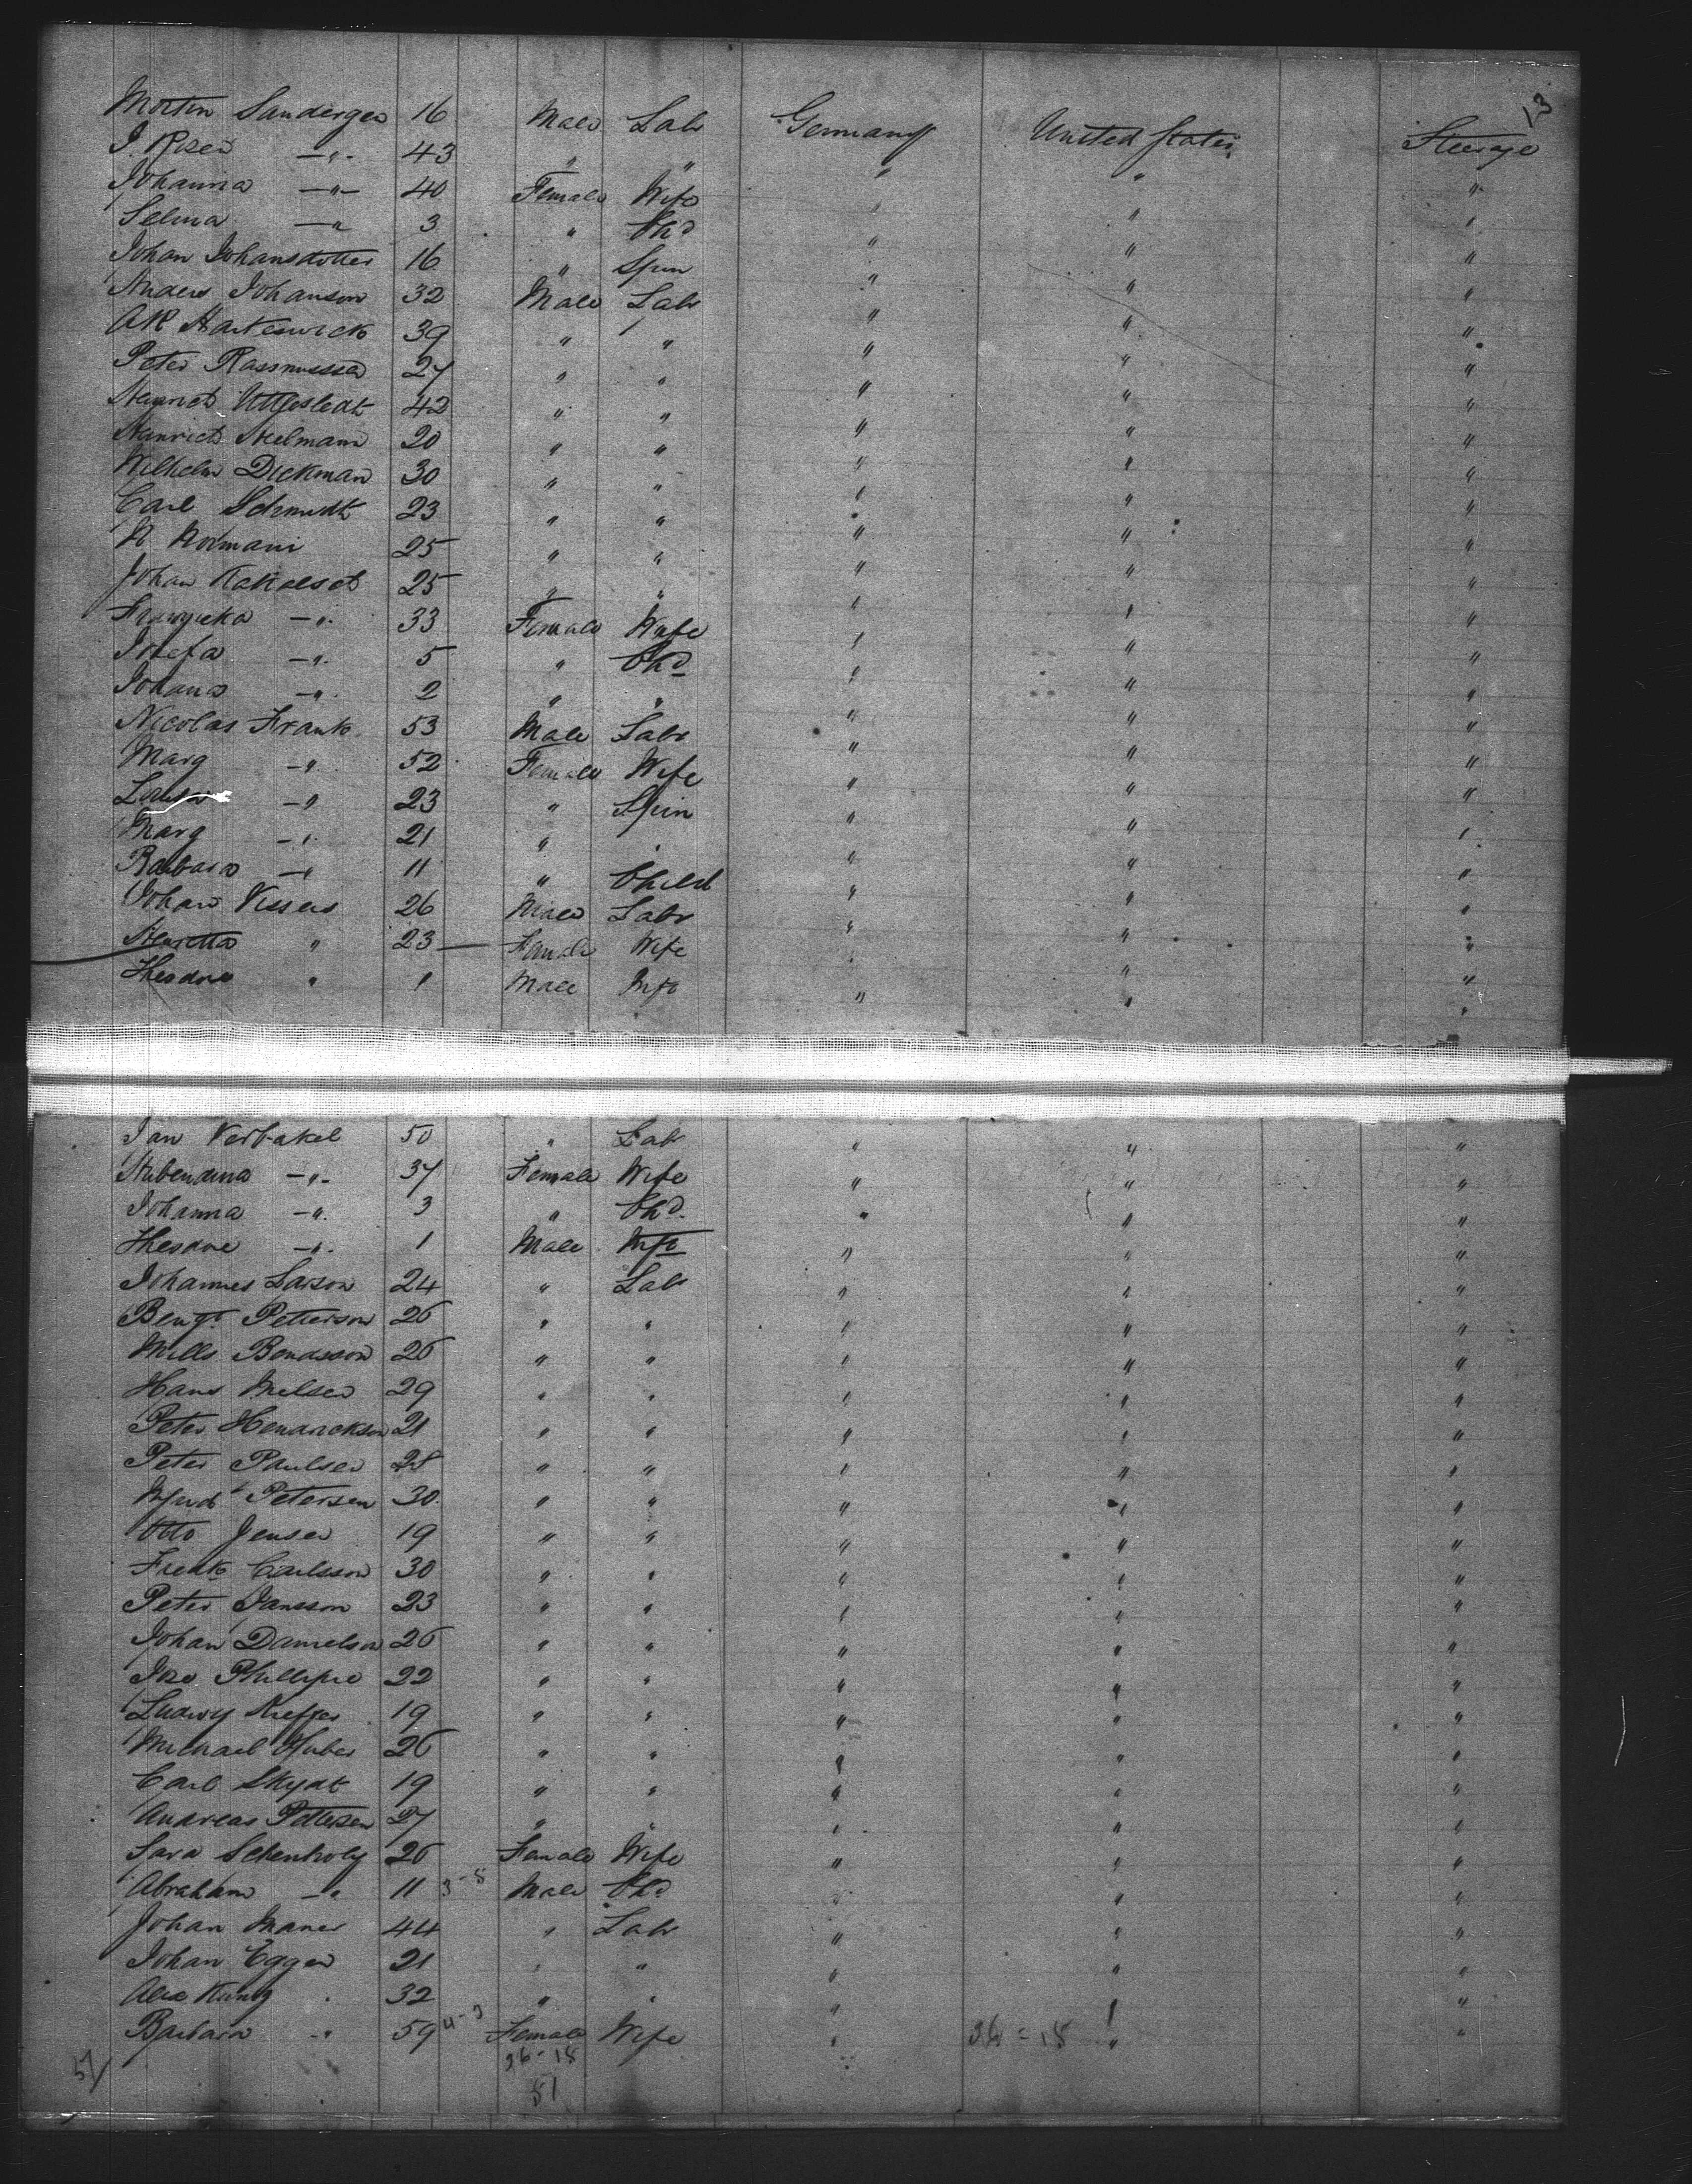 13
Morten Sandergen 16 Male Labr Germany United States Steerage
J. Rosed —"— 43 " " " " "
Johanna —"— 40 Female Wife " " "
Selma —" 3 " Chd " " "
Johan Johansdotter 16 " Spin " " "
Anders Johanson 32 Male Labr " " "
AR 39 " " " " "
Peter Rassmussen 27 " " " " "
Heinrich 42 " " " " "
Heinrich Heelmann 20 " " " " "
Wilhelm Dickman 30 " " " " "
Carl Schmidt 23 " " " " "
N Normann 25 " " " " "
Johan 25 " " " " "
—" 33 Female Wife " " "
Josefa —" 5 " Chd " " "
Johana —" 2 " " " " "
Nicolas Frank 53 Male Labr " " "
Marg —" 52 Female Wife " " "
—" 23 " Spin " " "
Marg —" 21 " " " " "
Barbara —" 11 " Child " " "
Johan Vissers 26 Male Labr " " "
Henretta " 23 — Female Wife " " "
Theodore " 1 Male Inft " " "
Jan Verbakel 50 " Labr " " "
Hubendina —"— 37 Female Wife " " "
Johanna —" 3 " Chd " " "
Theodore —" 1 Male Inft " " "
Johannes Larson 24 " Labr " " "
Bengt Petterson 26 " " " " "
Mills Bendsson 26 " " " " "
Hans Nielsen 29 " " " " "
Peter Hendrickson 21 " " " " "
Peter Paulsen 28 " " " " "
Petersen 30 " " " " "
Otto Jensen 19 " " " " "
Fredk Carlsson 30 " " " " "
Peter Jansson 23 " " " " "
Johan Danielson 26 " " " " "
Phillipe 22 " " " " "
Ludwig Kieffer 19 " " " " "
Michael Huber 26 " " " " "
Carl Skydt 19 " " " " "
Andreas Pettersen 27 " " " " "
Sara Schenholy 26 Female Wife " " "
Abraham —" 11 3-5 Male Chd " " "
Johan Maner 44 " Labr " " "
Johan Egger 21 " " " " "
Alex Kung 32 " " " " "
Barbara —" 59 4-3 Female Wife " 36=15 " "
51 36-15
51